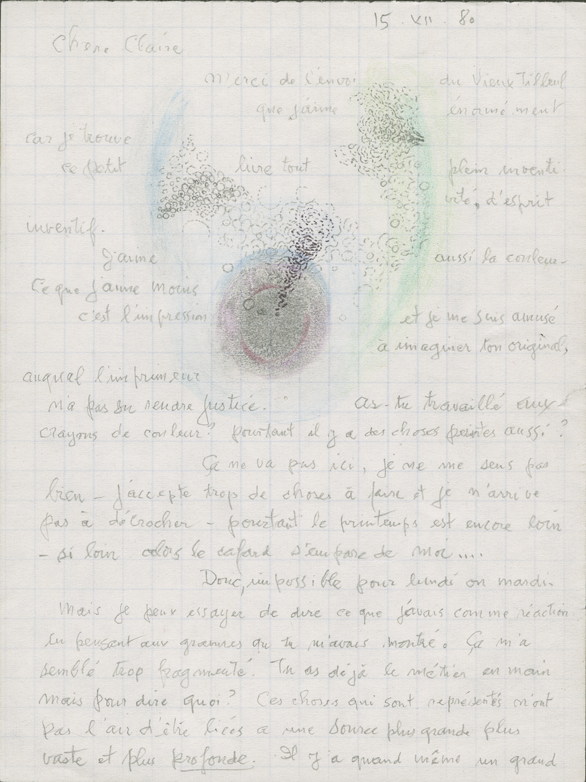 15. XII. 80
Chère Claire
merci de l'envoi du Vieux Tilleul
que j'aime énormément
car je trouve
ce petit livre tout plein inventi-
vité, d'esprit
inventif.
J'aime aussi la couleur.
Ce que j'aime moins
c'est l'impression et je me suis amusé
à imaginer ton original,
auquel l'imprimeur
n'a pas su rendre justice. as-tu travaillé aux
crayons de couleur? pourtant il y a des choses peintes aussi?
Ça ne va pas ici, je ne me sens pas
bien - j'accepte trop de choses à faire et je n'arrive
pas à décrocher - pourtant le printemps est encore loin
- si loin alors le cafard s'empare de moi....
Donc, impossible pour lundi ou mardi.
Mais je peux essayer de dire ce que j'avais comme réaction
en pensant aux gravures que tu m'avais montré. Ça m'a
semblé trop fragmenté. Tu as déjà le métier en main
mais pour dire quoi? Ces choses qui sont représentés n'ont
pas l'air d'être liées a une source plus grande plus
vaste et plus profonde. Il y a quand même un grand